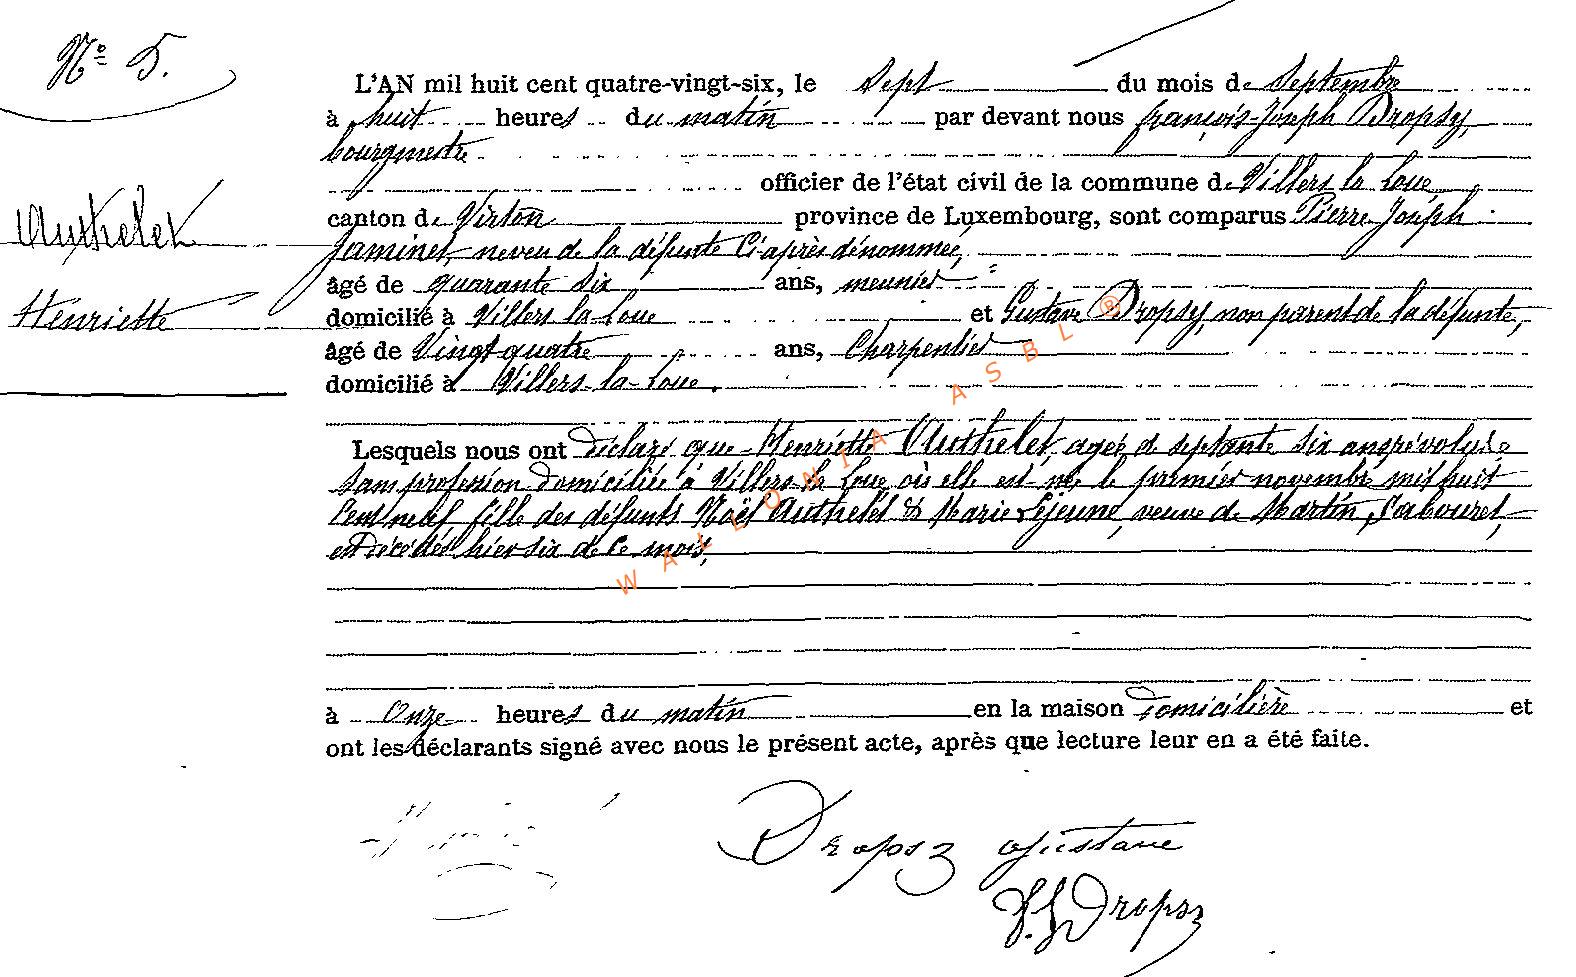 N° 5.
L'AN mil huit cent quatre-vingt-six, le sept du mois de Septembre
à huit heures du matin par devant nous françois-Joseph Dropsy,
bourgmestre
officier de l'état civil de la commune de Villers la Loue
Authelet
canton de Virton province de Luxembourg, sont comparus Pierre Joseph
Jaminet, neveu de la défunte ci-après dénommée,
âgé de quarante six ans, meunier
Henriette
domicilié à Villers la Loue et Gustave Dropsy, non parent de la défunte,
âgé de Vingt quatre ans, Charpentier
domicilié à Villers-la-Loue.
Lesquels nous ont déclaré que Henriette Authelet, agée d septante six ans révolus
sans profession domiciliée à Villers la Loue où elle est née le premier novembre mil huit
cent neuf, fille des défunts Noël Authelet & Marie Lejeune, veuve de Martin Sabouret,
est décédée hier six de ce mois,
à Onze heures du matin en la maison domicilière et
ont les déclarants signé avec nous le présent acte, après que lecture leur en a été faite.
Dropsy gustave
F. J. Dropsy
WALLONIA ASBL ®